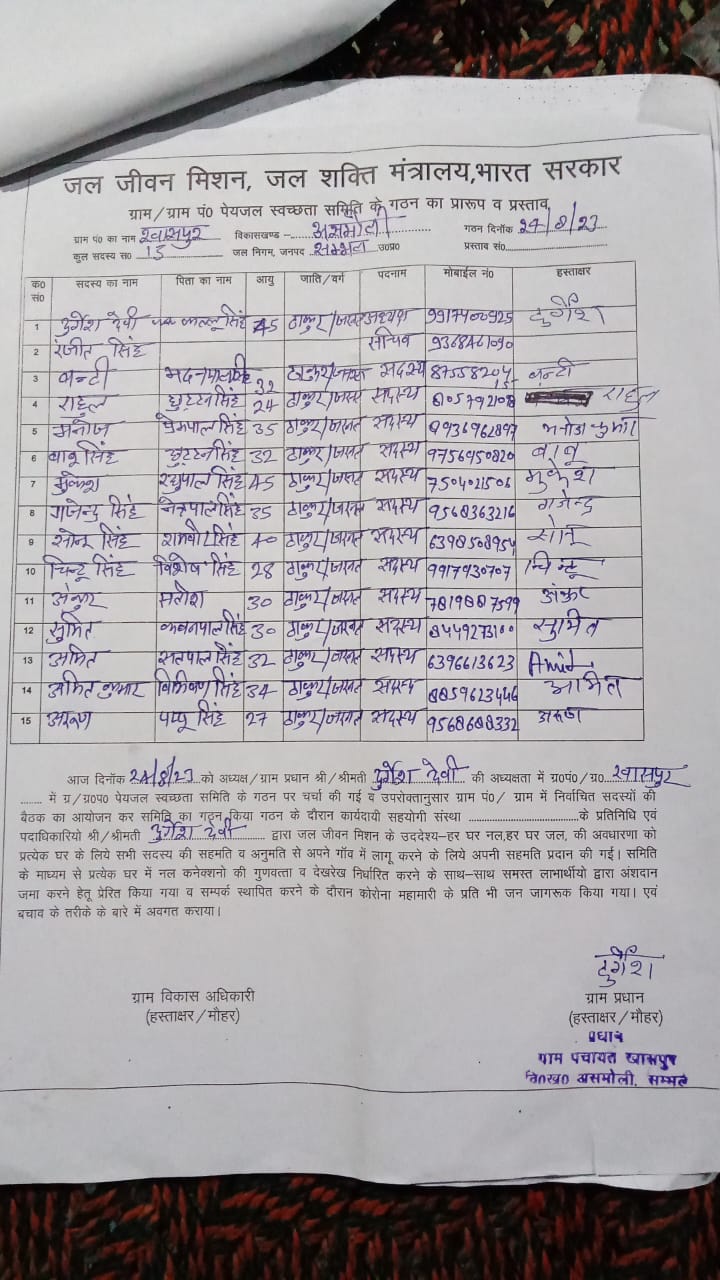 जल जीवन मिशन, जल शक्ति मंत्रालय,भारत सरकार
ग्राम/ग्राम पं० पेयजल स्वच्छता समिति के गठन का प्रारूप व प्रस्ताव
ग्राम पं० का नाम खासपुर विकासखण्ड - असमोली गठन दिनाँक 24/8/23
कुल सदस्य स० 15 जल निगम, जनपद सम्भल उ०प्र० प्रस्ताव सं०
क० सं० सदस्य का नाम पिता का नाम आयु जाति/वर्ग पदनाम मोबाईल नं० हस्ताक्षर
1 दुर्गेश देवी कल्लू सिंह 45 ठाकुर/जनरल अध्यक्ष दुर्गेश
2 रंजीत सिंह सचिव
3 बन्टी 32 ठाकुर/जनरल सदस्य बन्टी
4 राहुल छुट्टन सिंह 24 ठाकुर/जनरल सदस्य राहुल
5 मनोज प्रेमपाल सिंह 35 ठाकुर/जनरल सदस्य मनोज कुमार
6 बाबू सिंह छुट्टन सिंह 32 ठाकुर/जनरल सदस्य 9756950820 बाबू
7 मुकेश रघुपाल सिंह 45 ठाकुर/जनरल सदस्य मुकेश
8 गजेन्द्र सिंह नेत्रपाल सिंह 35 ठाकुर/जनरल सदस्य 9568363216 गजेन्द्र
9 सोनू सिंह रामवीर सिंह 40 ठाकुर/जनरल सदस्य 6398508954 सोनू
10 चिन्टू सिंह विशेष सिंह 28 ठाकुर/जनरल सदस्य 9917930707 चिन्टू
11 अंकुर सतीश 30 ठाकुर/जनरल सदस्य 7819887599 अंकुर
12 सुमित सिंह 30 ठाकुर/जनरल सदस्य 8449273100 सुमित
13 अमित सतपाल सिंह 32 ठाकुर/जनरल सदस्य 6396613623 Amit
14 अमित कुमार सिंह 34 ठाकुर/जनरल सदस्य 8859623446 अमित
15 अरूण पप्पू सिंह 27 ठाकुर/जनरल सदस्य 9568688332 अरूण
आज दिनाँक 24/8/23 को अध्यक्ष/ग्राम प्रधान श्री/श्रीमती दुर्गेश देवी की अध्यक्षता में ग्र०पं०/ग्र० खासपुर
में ग्र/ग्र०प० पेयजल स्वच्छता समिति के गठन पर चर्चा की गई व उपरोक्तानुसार ग्राम पं०/ ग्राम में निर्वाचित सदस्यों की
बैठक का आयोजन कर समिति का गठन किया गठन के दौरान कार्यदायी सहयोगी संस्था के प्रतिनिधि एवं
पदाधिकारियो श्री/श्रीमती दुर्गेश देवी द्वारा जल जीवन मिशन के उददेश्य-हर घर नल,हर घर जल, की अवधारणा को
प्रत्येक घर के लिये सभी सदस्य की सहमति व अनुमति से अपने गाँव में लागू करने के लिये अपनी सहमति प्रदान की गई। समिति
के माध्यम से प्रत्येक घर में नल कनेक्शनो की गुणवत्ता व देखरेख निर्धारित करने के साथ-साथ समस्त लाभार्थीयो द्वारा अंशदान
जमा करने हेतू प्रेरित किया गया व सम्पर्क स्थापित करने के दौरान कोरोना महामारी के प्रति भी जन जागरूक किया गया। एवं
बचाव के तरीके के बारे में अवगत कराया।
दुर्गेश
ग्राम विकास अधिकारी ग्राम प्रधान
(हस्ताक्षर/मौहर) (हस्ताक्षर/मौहर)
प्रधान
ग्राम पंचायत खासपुर
वि०ख० असमोली, सम्भल